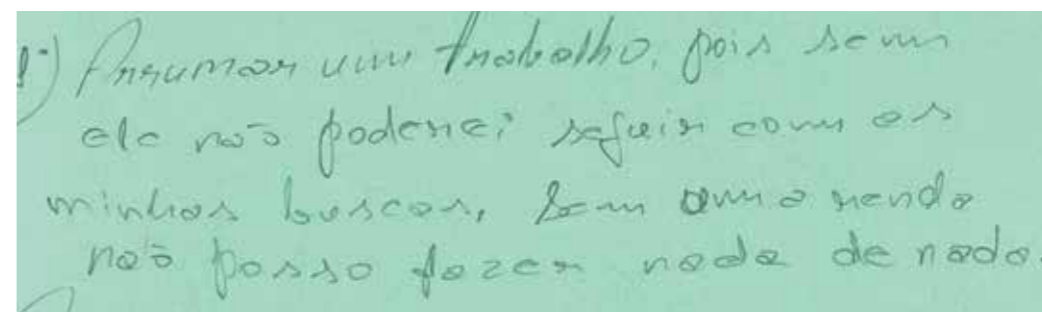 1º) Arrumar um trabalho, pois sem
ele não poderei seguir com as
minhas buscas, sem uma renda
não posso fazer nada de nada.